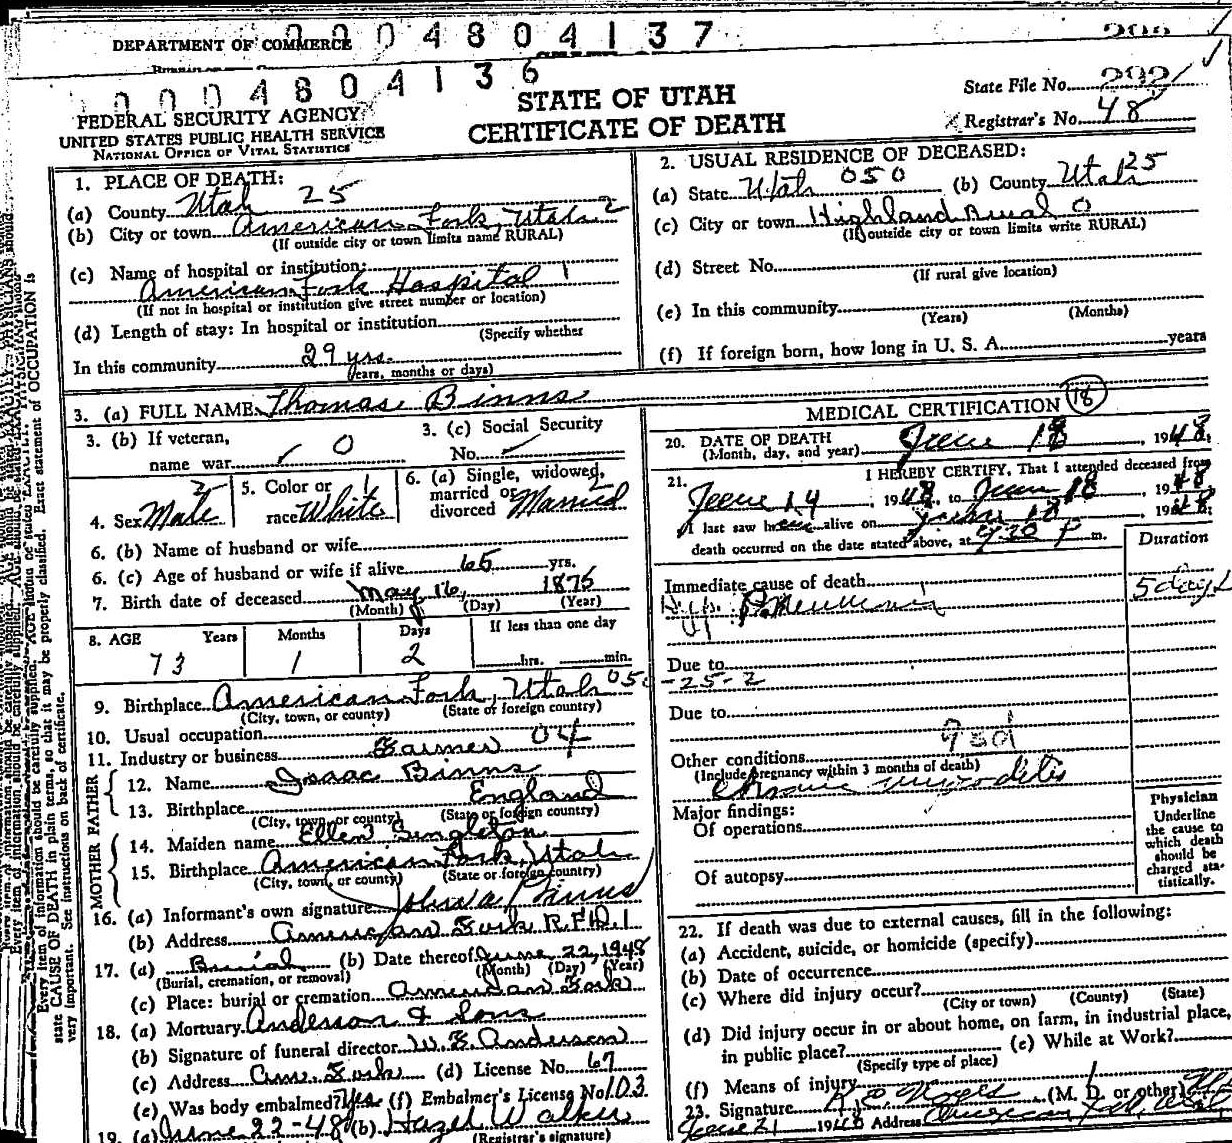 DEPARTMENT OF COMMERCE
0004804137
0004804136
FEDERAL SECURITY AGENCY
UNITED STATES PUBLIC HEALTH SERVICE
NATIONAL OFFICE OF VITAL STATISTICS
STATE OF UTAH
CERTIFICATE OF DEATH
State File No.
Registrar's No. 48
1. PLACE OF DEATH:
(a) County Utah 25
(b) City or town American Fork, Utah 2
(If outside city or town limits name RURAL)
(c) Name of hospital or institution:
American Fork Hospital 1
(If not in hospital or institution give street number or location)
(d) Length of stay: In hospital or institution
(Specify whether
In this community 29 yrs.
years, months or days)
2. USUAL RESIDENCE OF DECEASED:
(a) State Utah 050 (b) County Utah 25
(c) City or town Highland Rural 0
(If outside city or town limits write RURAL)
(d) Street No.
(If rural give location)
(e) In this community
(Years) (Months)
(f) If foreign born, how long in U. S. A. years
3. (a) FULL NAME Thomas Binns
3. (b) If veteran,
name war 0
3. (c) Social Security
No.
4. Sex Male 5. Color or race White 6. (a) Single, widowed, married or divorced Married
6. (b) Name of husband or wife
6. (c) Age of husband or wife if alive 65 yrs.
7. Birth date of deceased May 16, 1875
(Month) (Day) (Year)
8. AGE Years Months Days If less than one day
73 1 2 hrs. min.
9. Birthplace American Fork, Utah 050
(City, town, or county) (State or foreign country)
-25-2
10. Usual occupation
11. Industry or business Farmer 04
FATHER
12. Name Isaac Binns
13. Birthplace England
(City, town, or county) (State or foreign country)
MOTHER
14. Maiden name Ellen Singleton
15. Birthplace American Fork, Utah
(City, town, or county) (State or foreign country)
16. (a) Informant's own signature Binns
(b) Address American Fork R.F.D. 1
17. (a) Burial (b) Date thereof June 22, 1948
(Burial, cremation, or removal) (Month) (Day) (Year)
(c) Place: burial or cremation American Fork
18. (a) Mortuary Anderson & Sons
(b) Signature of funeral director W. E. Anderson
(c) Address Am. Fork (d) License No. 67
(e) Was body embalmed? Yes (f) Embalmer's License No. 103
19. (a) June 22-48 (b) Hazel Walker
(Registrar's signature)
MEDICAL CERTIFICATION 18
20. DATE OF DEATH
(Month, day, and year) June 18, 1948
21. I HEREBY CERTIFY, That I attended deceased from
June 14, 1948, to June 18, 1948
I last saw him alive on June 18, 1948
death occurred on the date stated above, at 9:30 P m.
Duration
Immediate cause of death 5 days
Hyp. Pneumonia
Due to
Due to
Other conditions
(Include pregnancy within 3 months of death)
Chronic myocarditis
Major findings:
Of operations
Of autopsy
Physician
Underline
the cause to
which death
should be
charged sta-
tistically.
22. If death was due to external causes, fill in the following:
(a) Accident, suicide, or homicide (specify)
(b) Date of occurrence
(c) Where did injury occur?
(City or town) (County) (State)
(d) Did injury occur in or about home, on farm, in industrial place,
in public place? (e) While at Work?
(Specify type of place)
(f) Means of injury
23. Signature (M. D. or other)
June 21 1948 Address American Fork, Utah